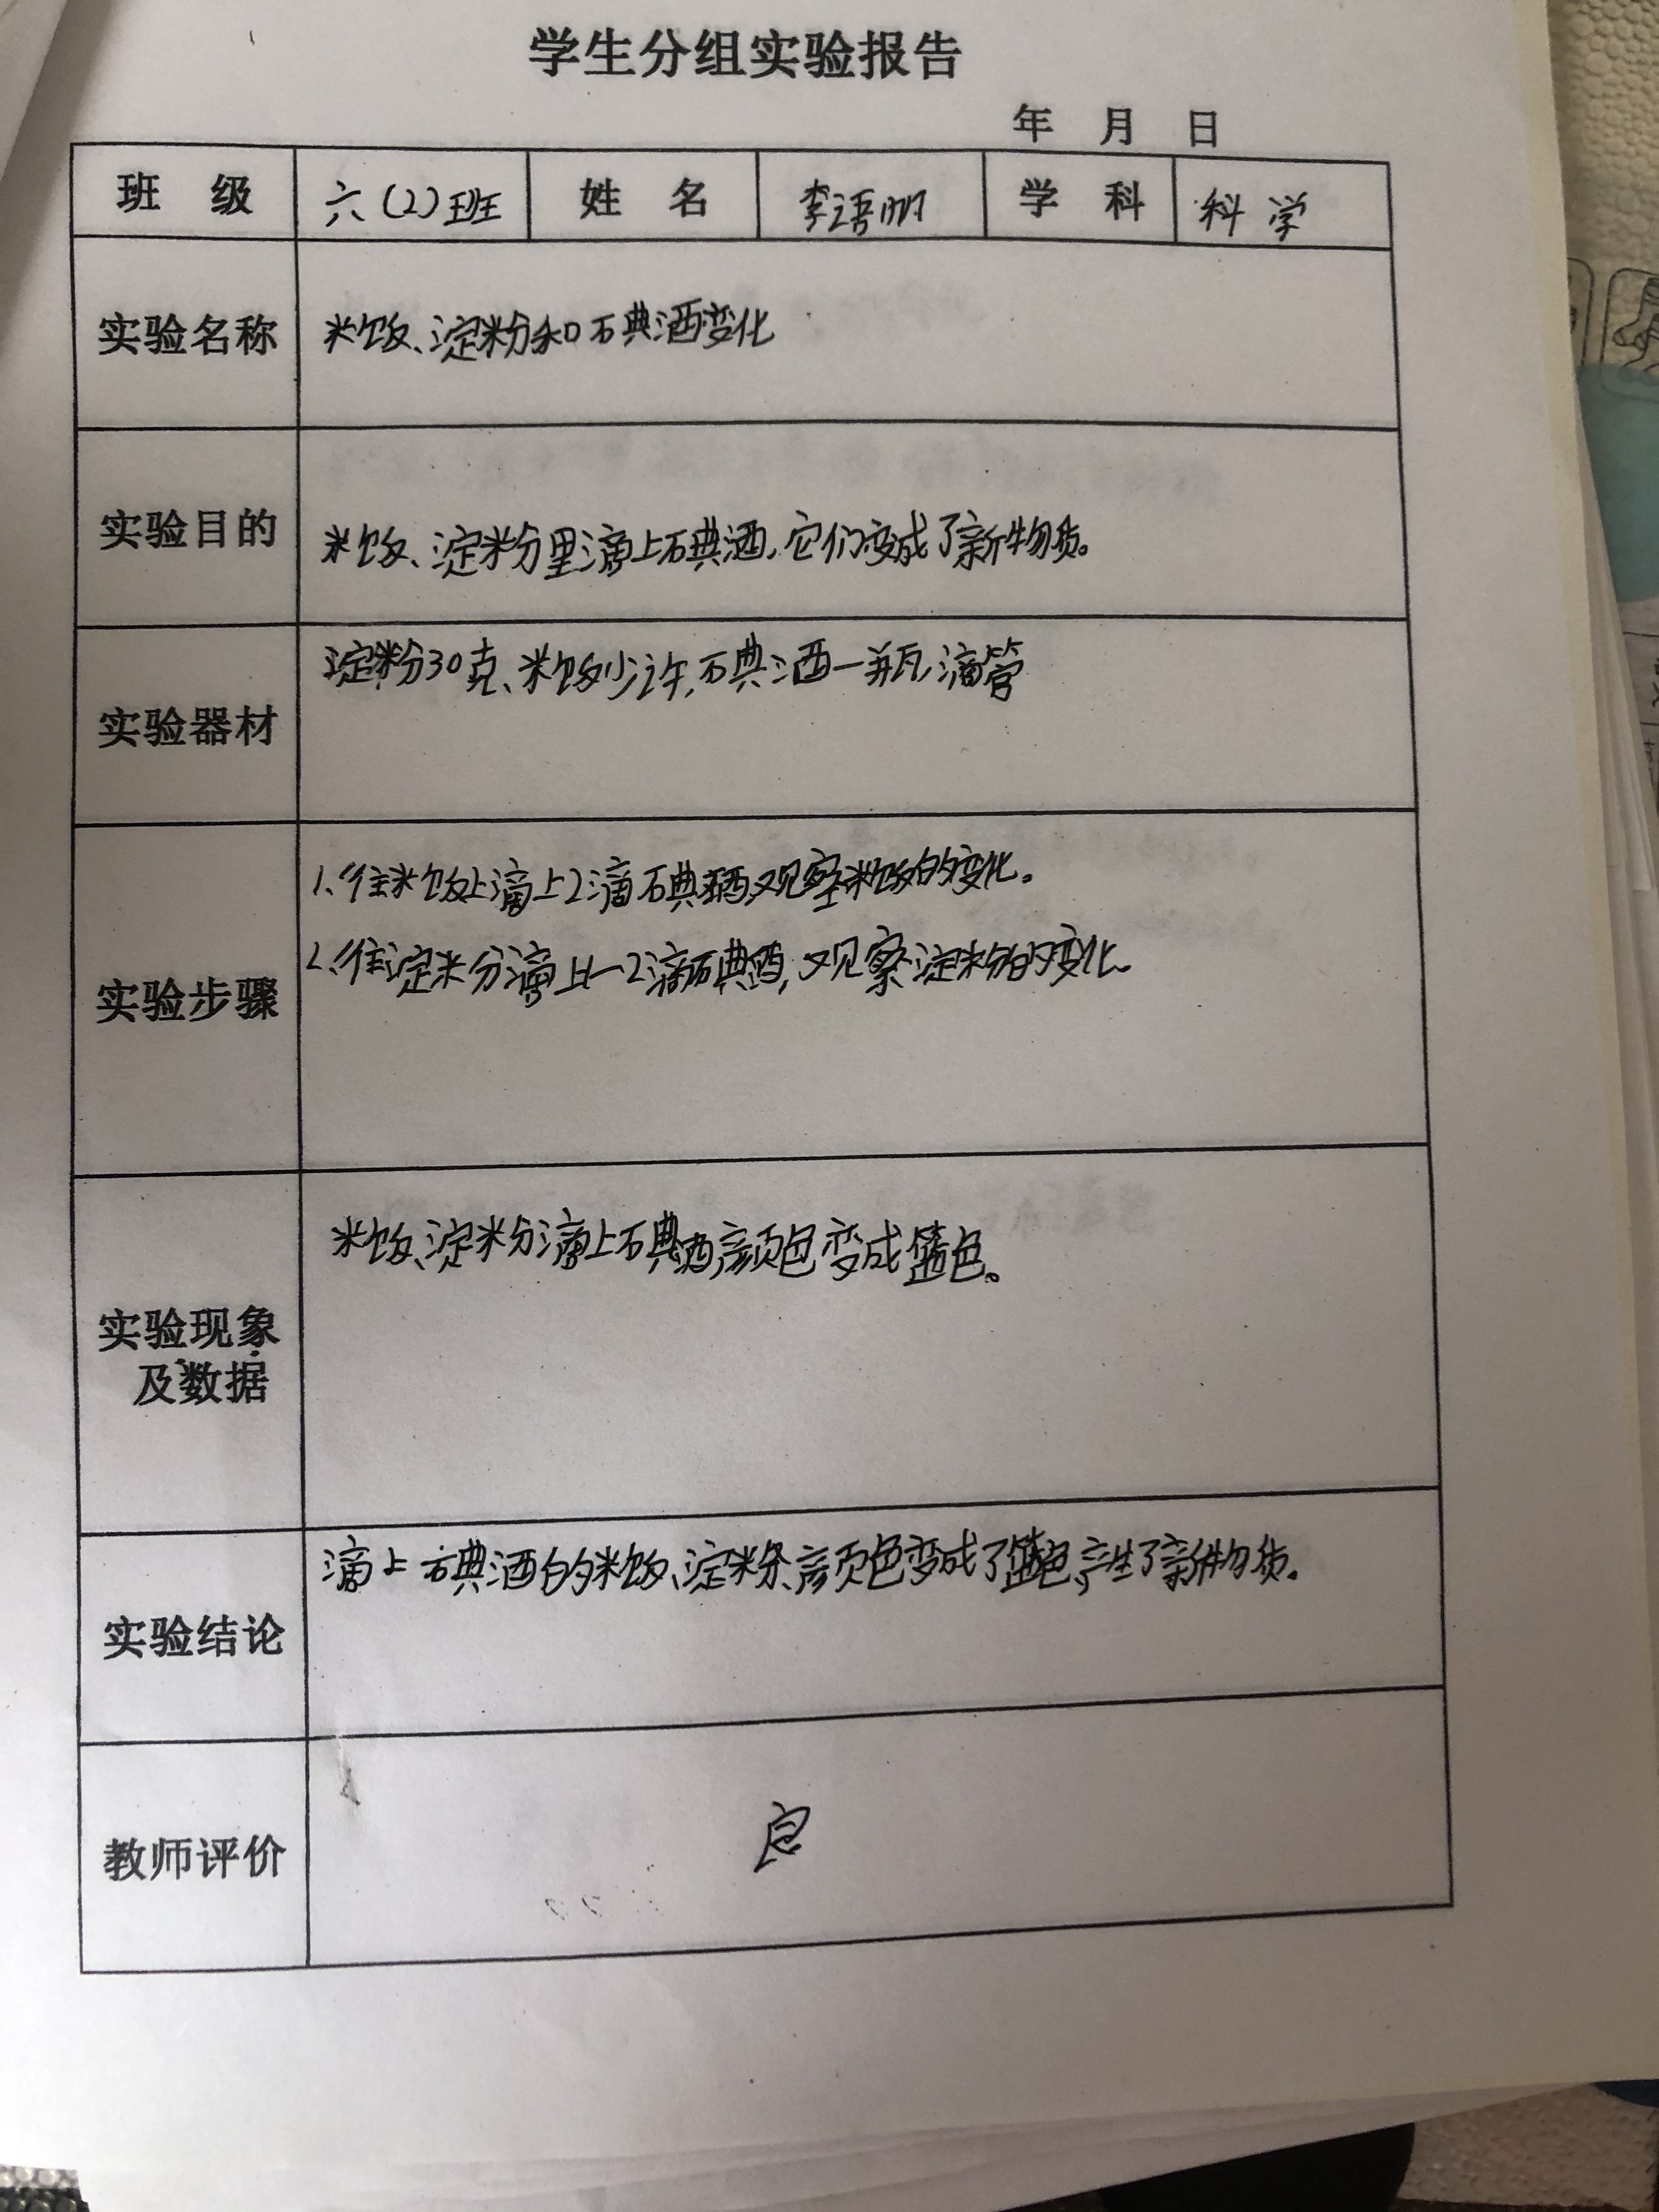 学生分组实验报告
年 月 日
班 级 六(2)班 姓 名 李语明 学 科 科学
实验名称 米饭、淀粉和碘酒变化
实验目的 米饭、淀粉里滴上碘酒,它们变成了新物质。
实验器材 淀粉30克、米饭少许,碘酒一瓶 滴管
1、往米饭上滴上2滴碘酒,观察米饭的变化。
2、往淀粉滴上1—2滴碘酒,观察淀粉的变化。
实验步骤
米饭、淀粉滴上碘酒,颜色变成篮色。
实验现象
及数据
滴上碘酒的米饭、淀粉、颜色变成了篮色,产生了新物质。
实验结论
教师评价 良